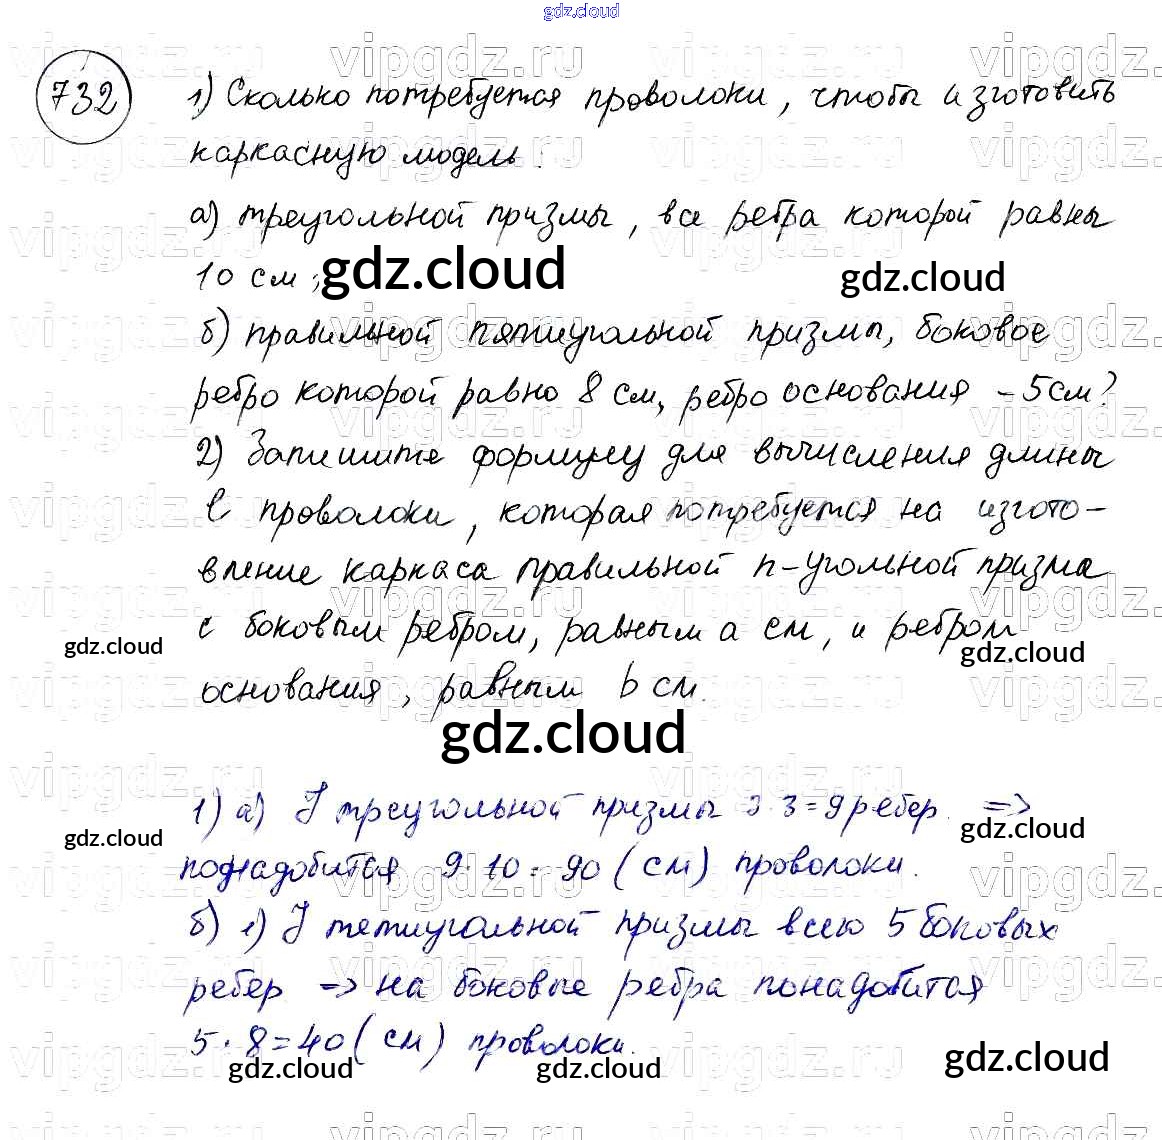 gdz.cloud
732
1) Сколько потребуется проволоки, чтобы изготовить
каркасную модель:
а) треугольной призмы, все ребра которой равны
10 см;
gdz.cloud
gdz.cloud
б) правильной пятиугольной призмы, боковое
ребро которой равно 8 см, ребро основания - 5 см?
2) Запишите формулу для вычисления длины
l проволоки, которая потребуется на изгото-
вление каркаса правильной n-угольной призма
с боковым ребром, равным a см, и ребром
gdz.cloud
gdz.cloud
основания, равным b см.
gdz.cloud
1) а) У треугольной призмы 3·3=9 ребер. =>
gdz.cloud
gdz.cloud
поднадобится 9·10=90 (см) проволоки.
б) 1) У петиугольной призмы всего 5 боковых
ребер => на боковые ребра понадобится
5·8=40 (см) проволоки.
gdz.cloud
gdz.cloud
gdz.cloud
vipgdz.ru